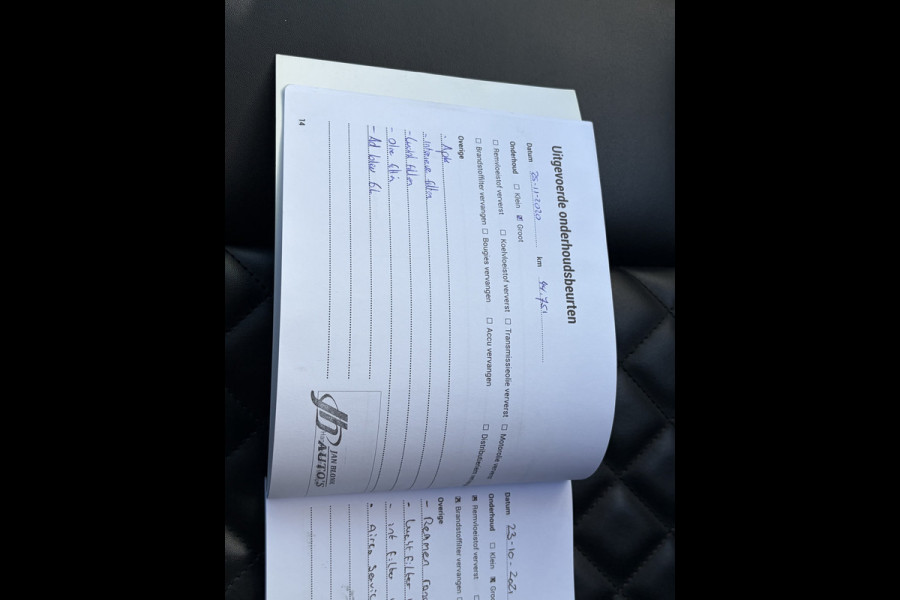 Uitgevoerde onderhoudsbeurten
Datum 25-11-2020 km 94.751
Onderhoud ☐ Klein ☒ Groot
☐ Remvloeistof ververst ☐ Koelvloeistof ververst ☐ Transmissieolie ververst ☐ Motorolie
☐ Brandstoffilter vervangen ☐ Bougies vervangen ☐ Accu vervangen ☐ Distributieriem
Overige
- Apk
- Interieur filter
- Lucht filter
- Olie filter
- Ad blue 6L
JAN BLOM
AUTO'S
14
Datum 23-10-2021
Onderhoud ☐ Klein ☒ Groot
☒ Remvloeistof ververst
☒ Brandstoffilter vervangen
Overige
- Remmen
- Luchtfilter
- int filter
- Airco servic